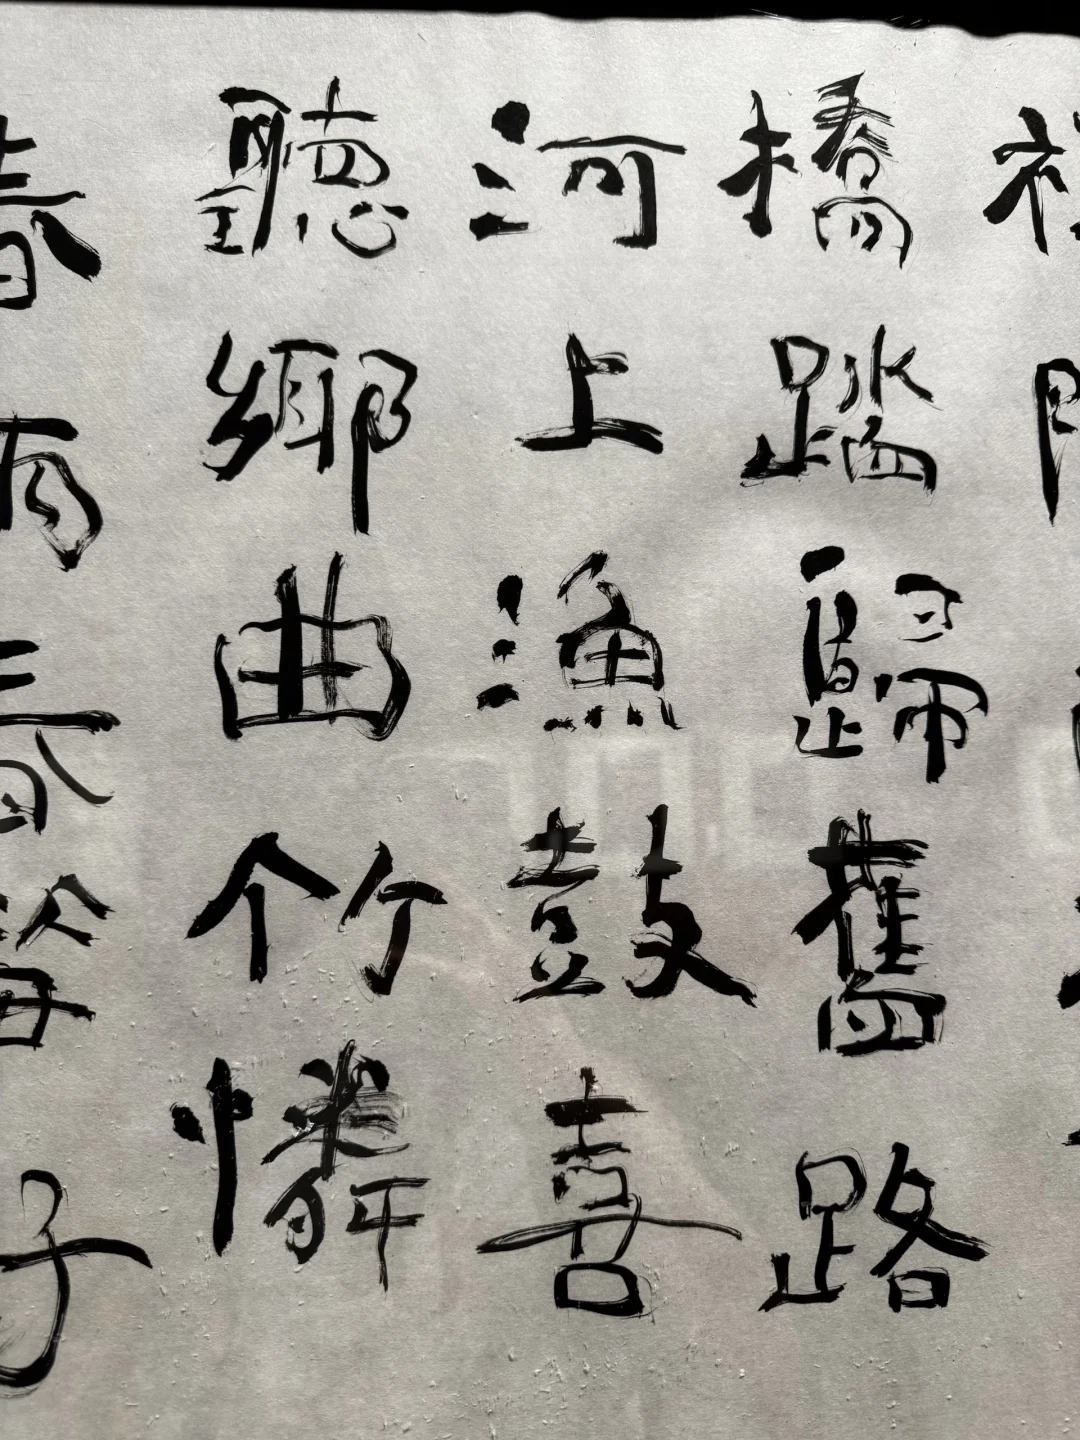 橋踏歸舊路
河上漁鼓喜
聽鄉曲个竹憐
春雨
子